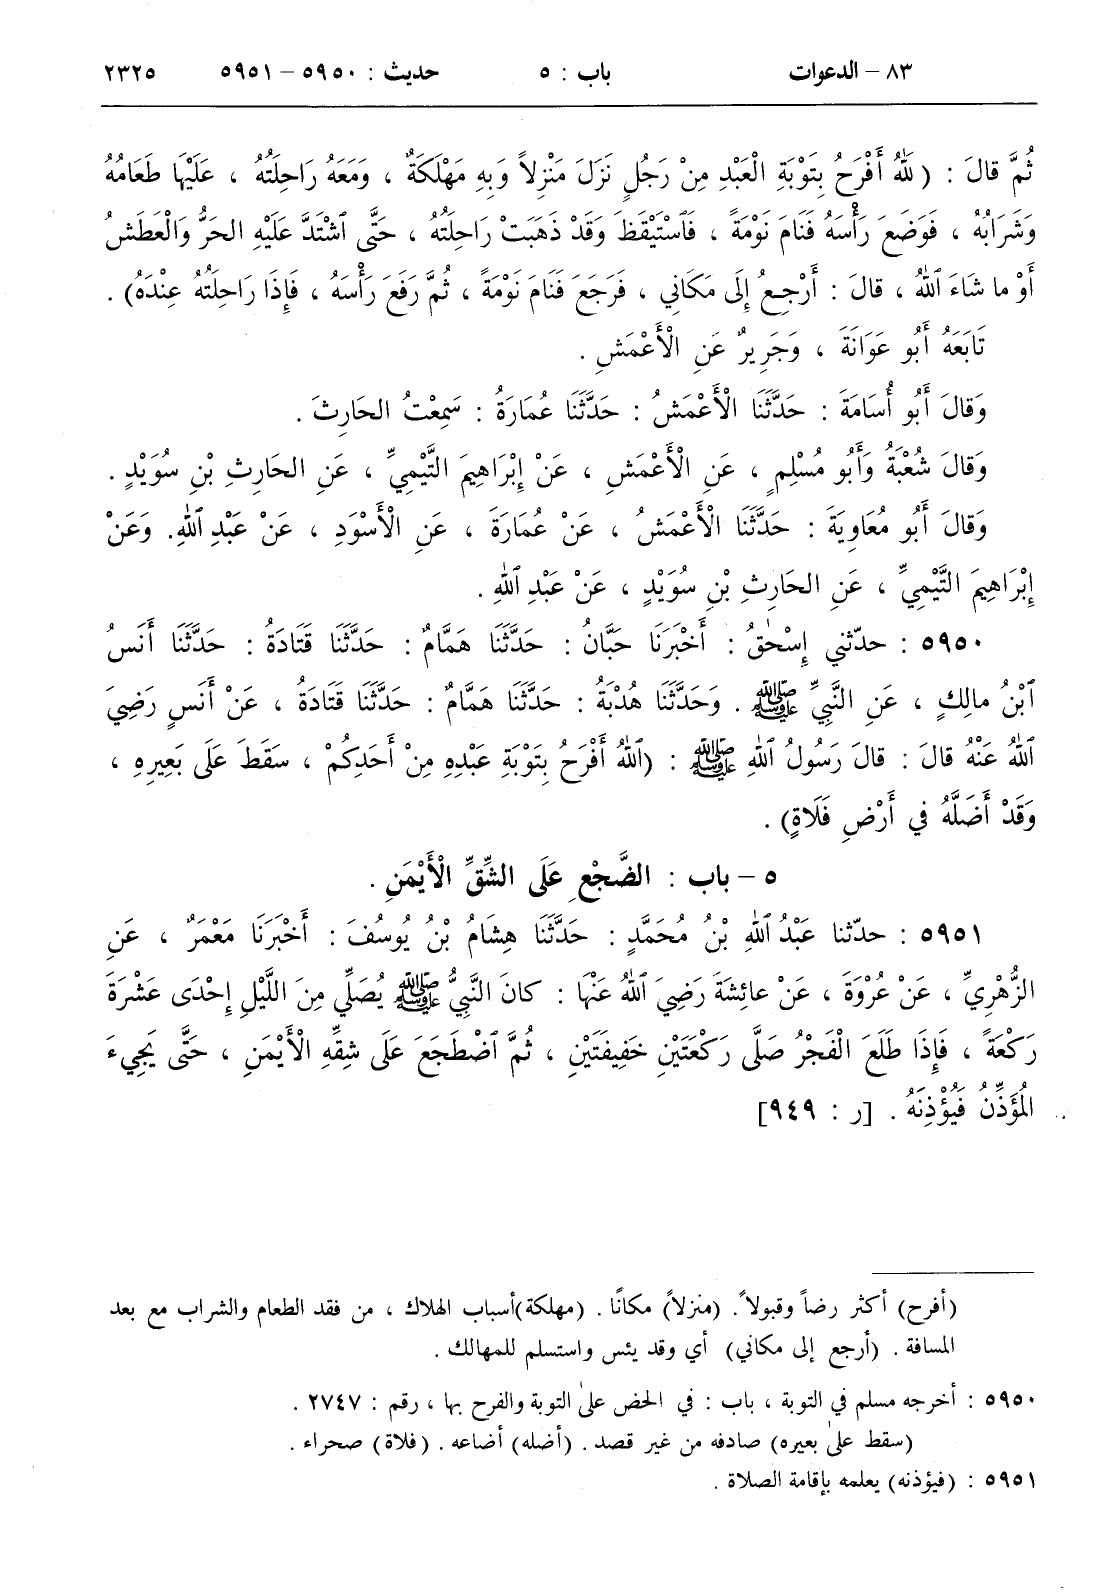 ٨٣ – الدعوات باب : ٥ حديث : ٥٩٥٠ – ٥٩٥١ ٢٣٢٥
ثُمَّ قالَ : (لَلّٰهُ أَفْرَحُ بِتَوْبَةِ الْعَبْدِ مِنْ رَجُلٍ نَزَلَ مَنْزِلاً وَبِهِ مَهْلَكَةٌ ، وَمَعَهُ رَاحِلَتُهُ ، عَلَيْهَا طَعَامُهُ
وَشَرَابُهُ ، فَوَضَعَ رَأْسَهُ فَنَامَ نَوْمَةً ، فَٱسْتَيْقَظَ وَقَدْ ذَهَبَتْ رَاحِلَتُهُ ، حَتَّى ٱشْتَدَّ عَلَيْهِ الحَرُّ وَالْعَطَشُ
أَوْ ما شَاءَ ٱللّٰهُ ، قالَ : أَرْجِعُ إِلَى مَكَانِي ، فَرَجَعَ فَنَامَ نَوْمَةً ، ثُمَّ رَفَعَ رَأْسَهُ ، فَإِذَا رَاحِلَتُهُ عِنْدَهُ) .
تَابَعَهُ أَبُو عَوَانَةَ ، وَجَرِيرٌ عَنِ الْأَعْمَشِ .
وَقالَ أَبُو أُسَامَةَ : حَدَّثَنَا الْأَعْمَشُ : حَدَّثَنَا عُمَارَةُ : سَمِعْتُ الحَارِثَ .
وَقالَ شُعْبَةُ وَأَبُو مُسْلِمٍ ، عَنِ الْأَعْمَشِ ، عَنْ إِبْرَاهِيمَ التَّيْمِيِّ ، عَنِ الحَارِثِ بْنِ سُوَيْدٍ .
وَقالَ أَبُو مُعَاوِيَةَ : حَدَّثَنَا الْأَعْمَشُ ، عَنْ عُمَارَةَ ، عَنِ الْأَسْوَدِ ، عَنْ عَبْدِ ٱللّٰهِ. وَعَنْ
إِبْرَاهِيمَ التَّيْمِيِّ ، عَنِ الحَارِثِ بْنِ سُوَيْدٍ ، عَنْ عَبْدِ ٱللّٰهِ .
٥٩٥٠ : حدّثني إِسْحٰقُ : أَخْبَرَنَا حَبَّانُ : حَدَّثَنَا هَمَّامٌ : حَدَّثَنَا قَتَادَةُ : حَدَّثَنَا أَنَسُ
ٱبْنُ مالِكٍ ، عَنِ النَّبِيِّ ﷺ . وَحَدَّثَنَا هُدْبَةُ : حَدَّثَنَا هَمَّامٌ : حَدَّثَنَا قَتَادَةُ ، عَنْ أَنَسٍ رَضِيَ
ٱللّٰهُ عَنْهُ قالَ : قالَ رَسُولُ ٱللّٰهِ ﷺ : (ٱللّٰهُ أَفْرَحُ بِتَوْبَةِ عَبْدِهِ مِنْ أَحَدِكُمْ ، سَقَطَ عَلَى بَعِيرِهِ ،
وَقَدْ أَضَلَّهُ في أَرْضِ فَلَاةٍ) .
٥ – باب : الضَّجْعِ عَلَى الشِّقِّ الْأَيْمَنِ .
٥٩٥١ : حدّثنا عَبْدُ ٱللّٰهِ بْنُ مُحَمَّدٍ : حَدَّثَنَا هِشَامُ بْنُ يُوسُفَ : أَخْبَرَنَا مَعْمَرٌ ، عَنِ
الزُّهْرِيِّ ، عَنْ عُرْوَةَ ، عَنْ عائِشَةَ رَضِيَ ٱللّٰهُ عَنْهَا : كانَ النَّبِيُّ ﷺ يُصَلِّي مِنَ اللَّيْلِ إِحْدَى عَشْرَةَ
رَكْعَةً ، فَإِذَا طَلَعَ الْفَجْرُ صَلَّى رَكْعَتَيْنِ خَفِيفَتَيْنِ ، ثُمَّ ٱضْطَجَعَ عَلَى شِقِّهِ الْأَيْمَنِ ، حَتَّى يَجِيءَ
الْمُؤَذِّنُ فَيُؤْذِنَهُ . [ر : ٩٤٩]
(أفرح) أكثر رضاً وقبولاً. (منزلاً) مكانًا . (مهلكة)أسباب الهلاك ، من فقد الطعام والشراب مع بعد
المسافة . (أرجع إلى مكاني) أي وقد يئس واستسلم للمهالك .
٥٩٥٠ : أخرجه مسلم في التوبة ، باب : في الحض علىٰ التوبة والفرح بها ، رقم : ٢٧٤٧ .
(سقط علىٰ بعيره) صادفه من غير قصد . (أضله) أضاعه . (فلاة) صحراء .
٥٩٥١ : (فيؤذنه) يعلمه بإقامة الصلاة .